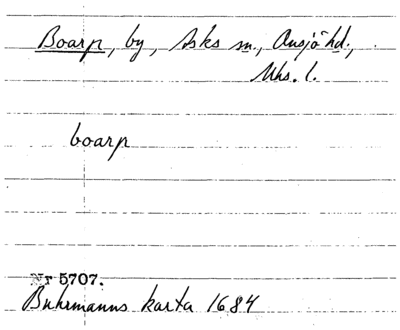 Boarp, by, Asks sn., Onsjö hd.,
Mhs. l.
boarp
Nr 5707.
Buhrmanns karta 1684